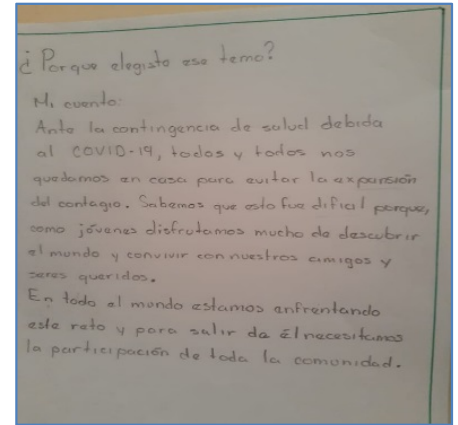 ¿Porque elegiste ese tema?
Mi cuento:
Ante la contingencia de salud debida
al COVID-19, todos y todos nos
quedamos en casa para evitar la expansión
del contagio. Sabemos que esto fue dificil porque,
como jóvenes disfrutamos mucho de descubrir
el mundo y convivir con nuestros amigos y
seres queridos.
En todo el mundo estamos enfrentando
este reto y para salir de Él necesitamos
la participación de toda la comonidad.